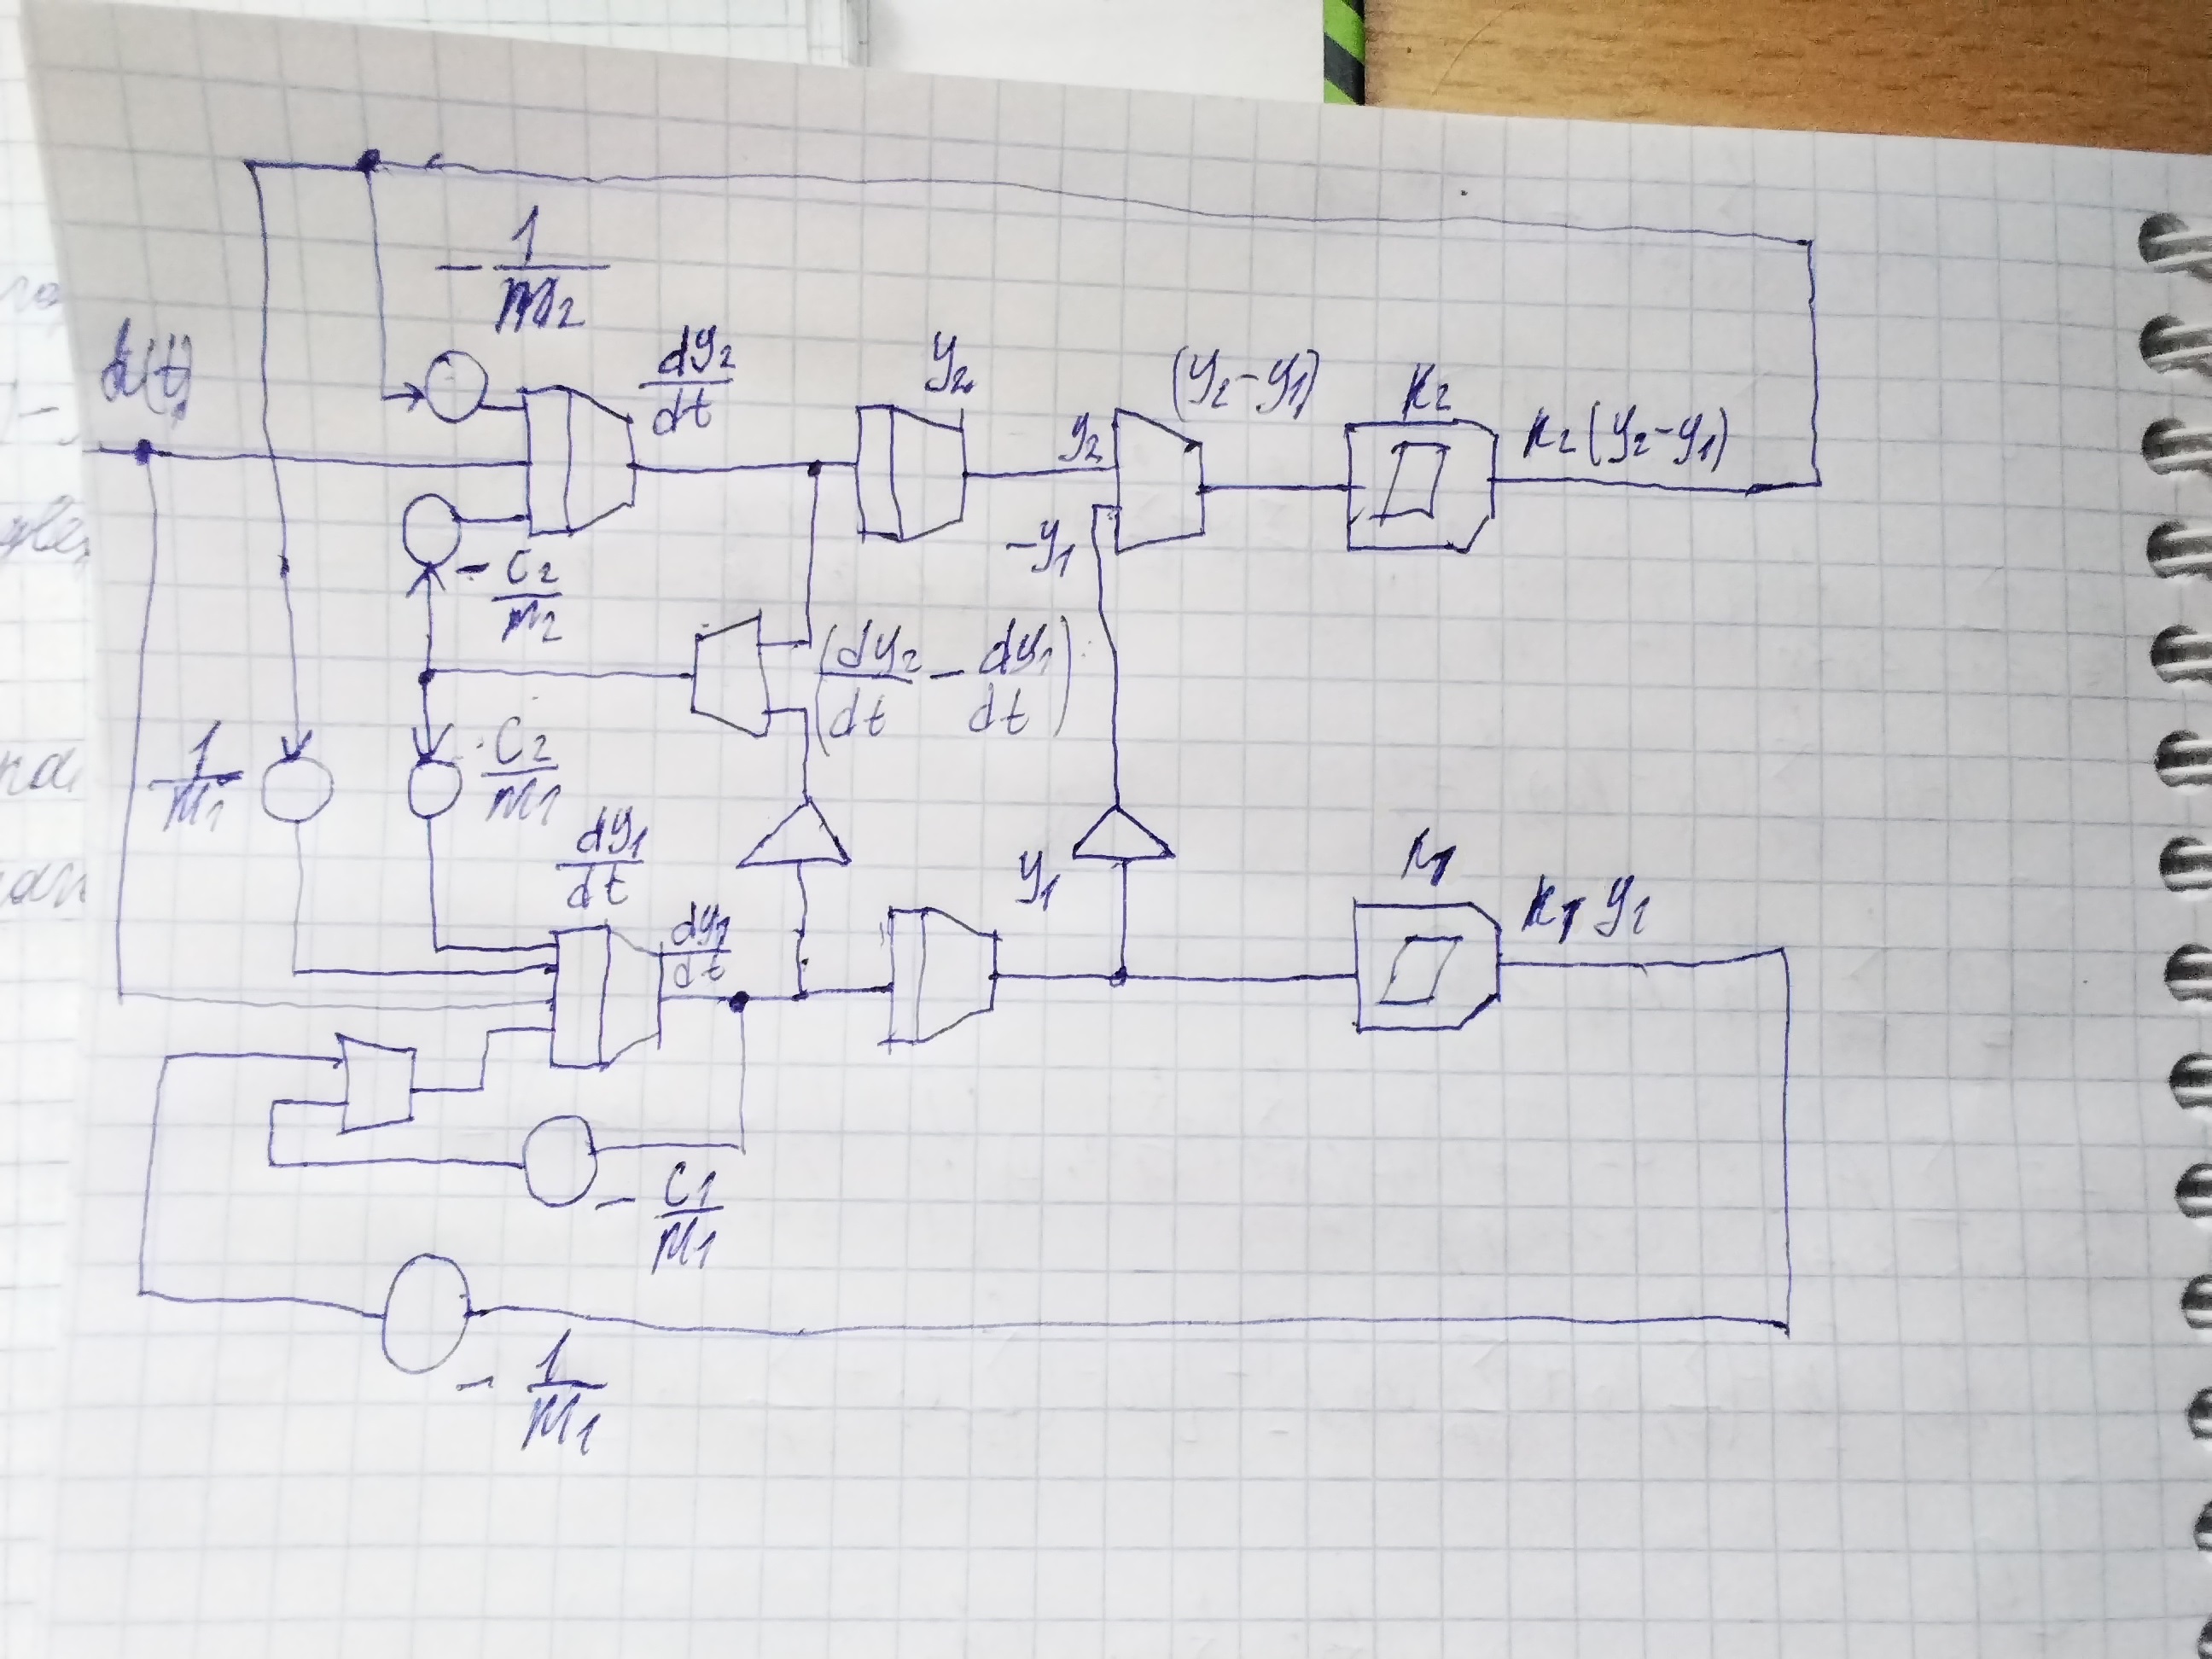 - 1/m2
dy2/dt
y2
(y2-y1)
K2
K2(y2-y1)
y2
-y1
- C2/m2
(dy2/dt - dy1/dt)
1/m1
C2/m1
dy1/dt
y1
K1
K1 y1
dy1/dt
- C1/m1
- 1/m1